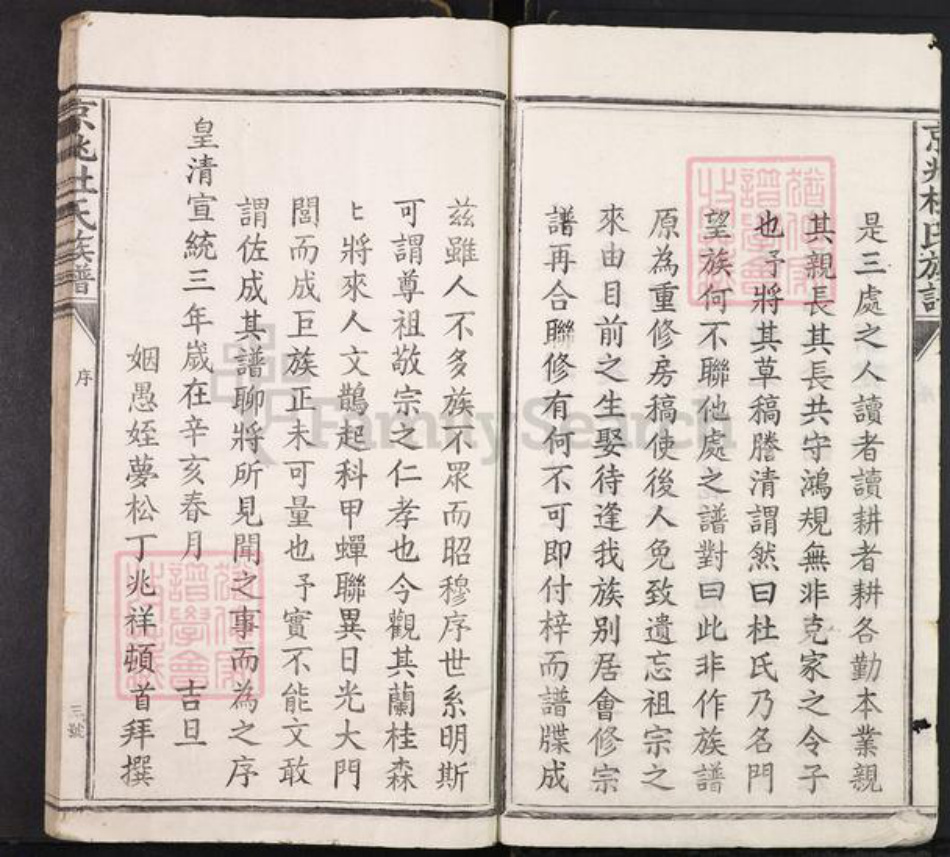 京兆杜氏族譜
是三處之人讀者讀耕者耕各勤本業親
其親長其長共守鴻規無非克家之令子
也予將其草稿謄清謂然曰杜氏乃名門
望族何不聯他處之譜對曰此非作族譜
原為重修房稿使後人免致遺忘祖宗之
來由目前之生娶待逢我族別居會修宗
譜再合聯修有何不可即付梓而譜牒成
茲雖人不多族不眾而昭穆序世系明斯
可謂尊祖敬宗之仁孝也今觀其蘭桂森
匕將來人文鵲起科甲蟬聯異日光大門
閭而成巨族正未可量也予實不能文敢
謂佐成其譜聊將所見聞之事而為之序
皇清宣統三年嵗在辛亥春月 吉旦
姻愚姪夢松丁兆祥頓首拜撰
京兆杜氏族譜
序
三號
FamilySearch